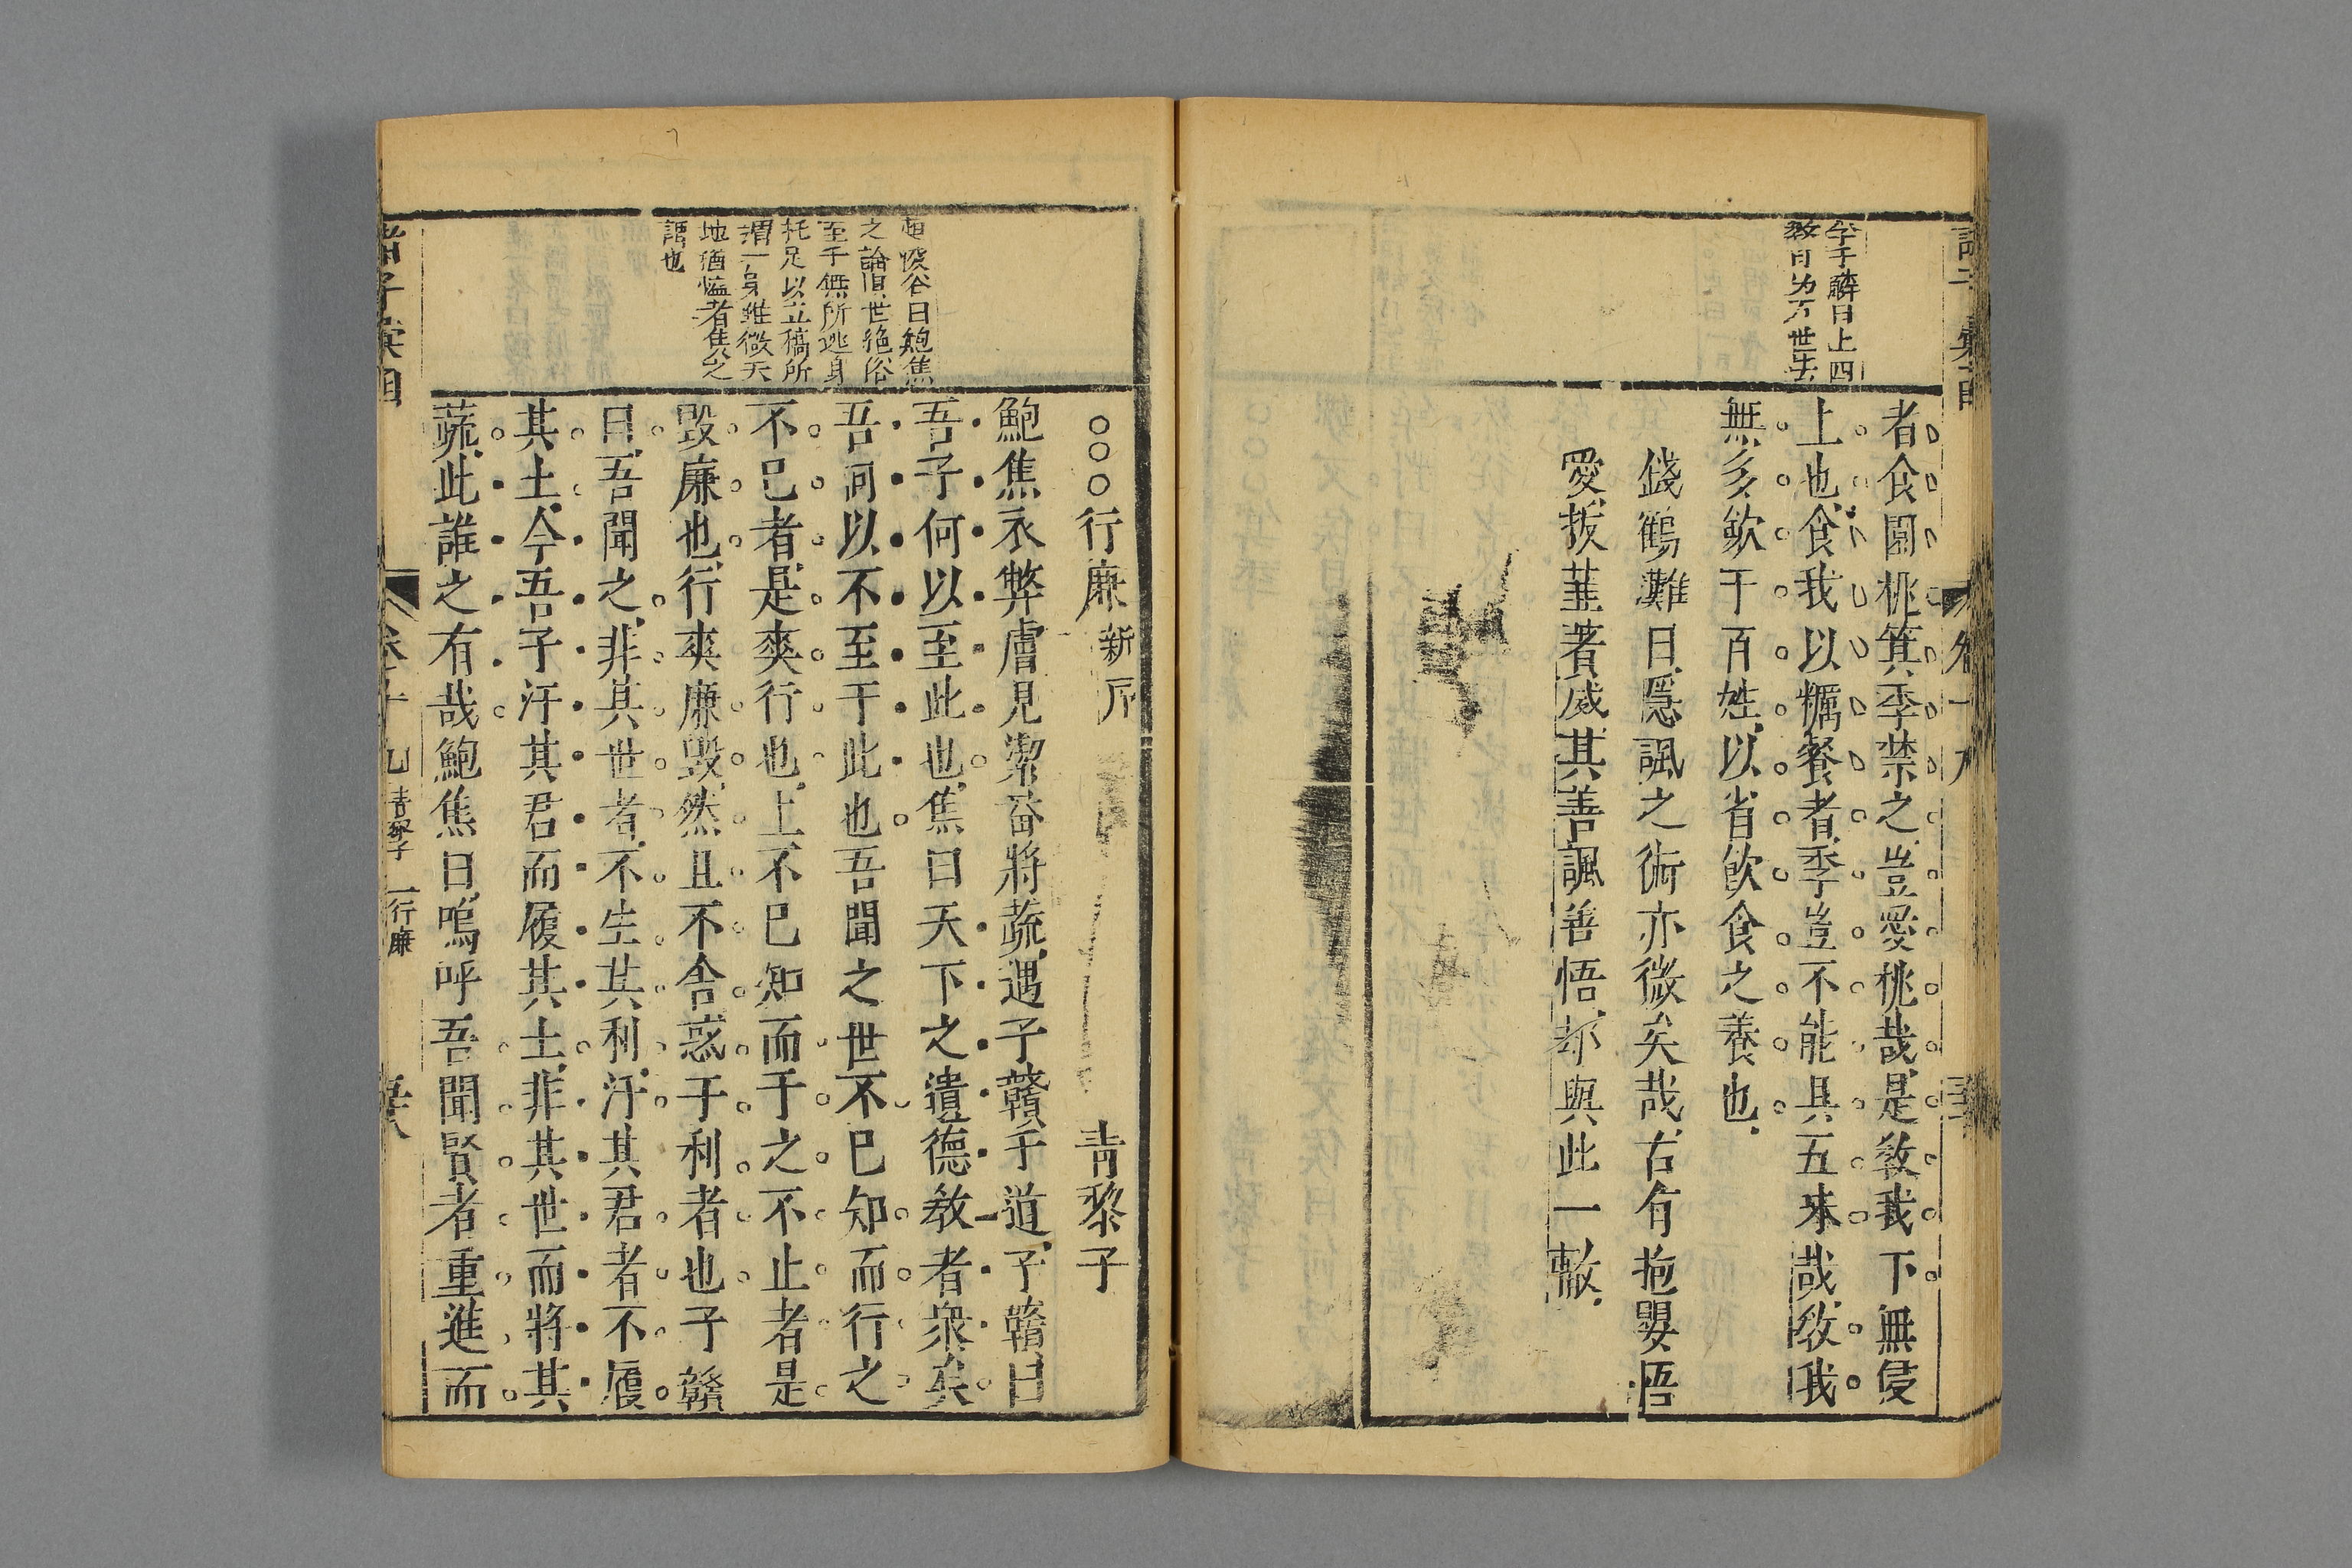 者食園桃箕季禁之豈愛桃哉是教我下無侵
上也食我以糲餐者季豈不能具五味哉教我
無多歛于百姓以省飲食之養也
錢鶴灘曰隱諷之術亦微矣哉右有拖嬰悟
愛拔薤著威其善諷善悟都與此一轍
教百为万世法
行廉 新序 青黎子
鮑焦衣弊膚見潔畚將蔬遇子贛于道子贛曰
吾子何以至此也焦曰天下之遺德教者衆矣
吾何以不至于此也吾聞之世不已知而行之
不已者是爽行也上不已知而于之不止者是
毀廉也行爽廉毀然且不舍惑于利者也子贛
曰吾聞之非其世者不生其利汙其君者不履
其土今吾子汙其君而履其土非其世而將其
蔬此誰之有哉鮑焦曰嗚呼吾聞賢者重進而
曰鮑焦
之論但世絶俗
至于無所逃身
托足以立稿所
謂一身雖微天
地猶隘者焦之
謂也
卷十九 青黎子 行廉